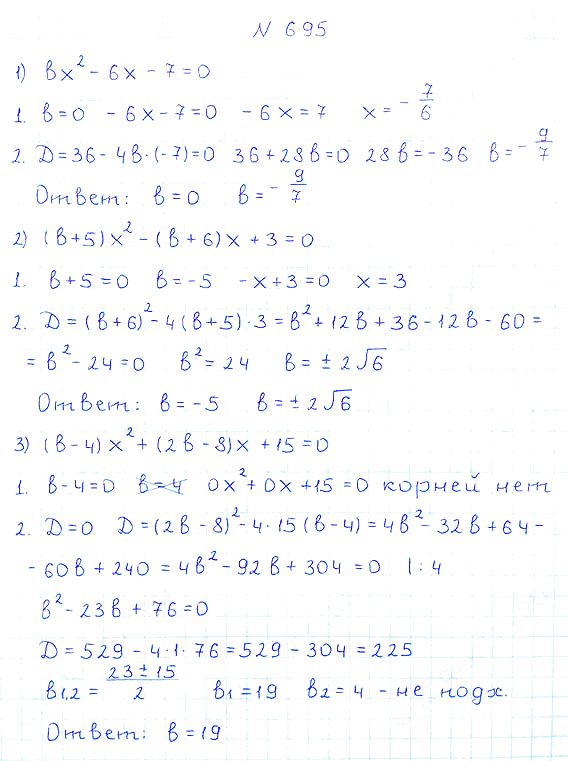 N 695
1) вx² - 6x - 7 = 0
1. в = 0 - 6x - 7 = 0 - 6x = 7 x = - 7/6
2. D = 36 - 4в·(-7) = 0 36 + 28в = 0 28в = -36 в = - 9/7
Ответ: в = 0 в = - 9/7
2) (в+5)x² - (в+6)x + 3 = 0
1. в+5 = 0 в = -5 -x+3 = 0 x = 3
2. D = (в+6)² - 4(в+5)·3 = в² + 12в + 36 - 12в - 60 =
= в² - 24 = 0 в² = 24 в = ± 2√6
Ответ: в = -5 в = ± 2√6
3) (в-4)x² + (2в-8)x + 15 = 0
1. в-4 = 0 в = 4 0x² + 0x + 15 = 0 корней нет
2. D = 0 D = (2в-8)² - 4·15(в-4) = 4в² - 32в + 64 -
- 60в + 240 = 4в² - 92в + 304 = 0 |:4
в² - 23в + 76 = 0
D = 529 - 4·1·76 = 529 - 304 = 225
в1,2 = 23±15/2 в1 = 19 в2 = 4 - не подх.
Ответ: в = 19